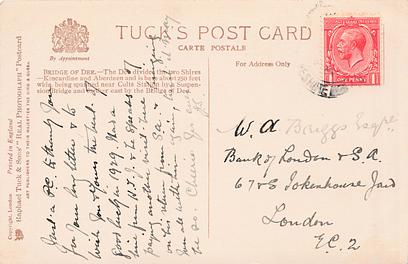 TUCK'S POST CARD
CARTE POSTALE
By Appointment
For Address Only
BRIDGE OF DEE.—The Dee divides the two Shires
Kincardine and Aberdeen and is here about 250 feet
wide, being spanned near Cults Station by a Suspension
Bridge and lower east by the Bridge of Dee.
Copyright, London
Printed in England
RAPHAEL TUCK & SONS' "REAL PHOTOGRAPH" Postcard
ART PUBLISHERS TO THEIR MAJESTIES THE KING & QUEEN
ONE PENNY
Just a P.C. to thank you
for your long letter & to
wish you & yours the best of
good luck in 1929. Had a
line from
paying another visit here
on his return from S.A. &
W. A Briggs Esqre
Bank of London & S.A.
6 7 & 8 Tokenhouse Yard
London
E.C. 2